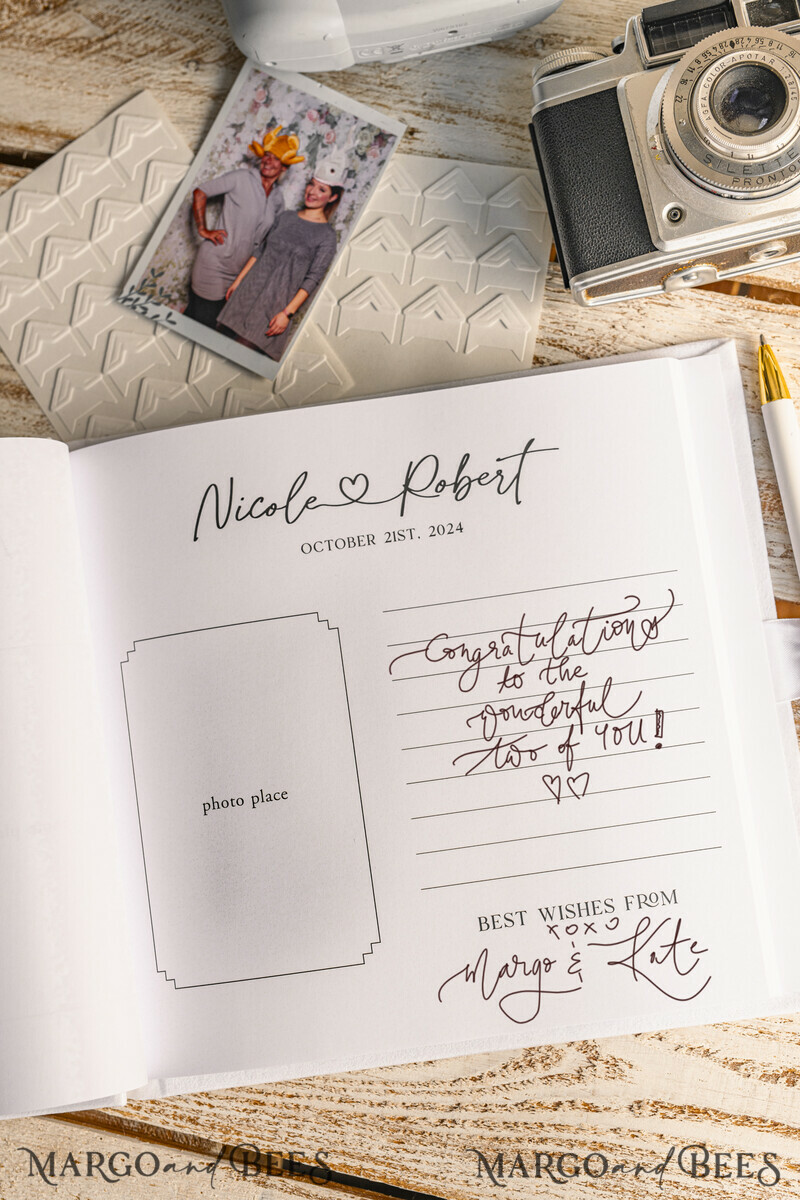 AGFA COLOR-APOTAR
SILETTE
PRONTO
Nicole Robert
OCTOBER 21ST. 2024
Congratulations
to the
wonderful
two of YOU!
photo place
BEST WISHES FROM
xoxo
Margo & Kate
MARGO and BEES MARGO and BEES